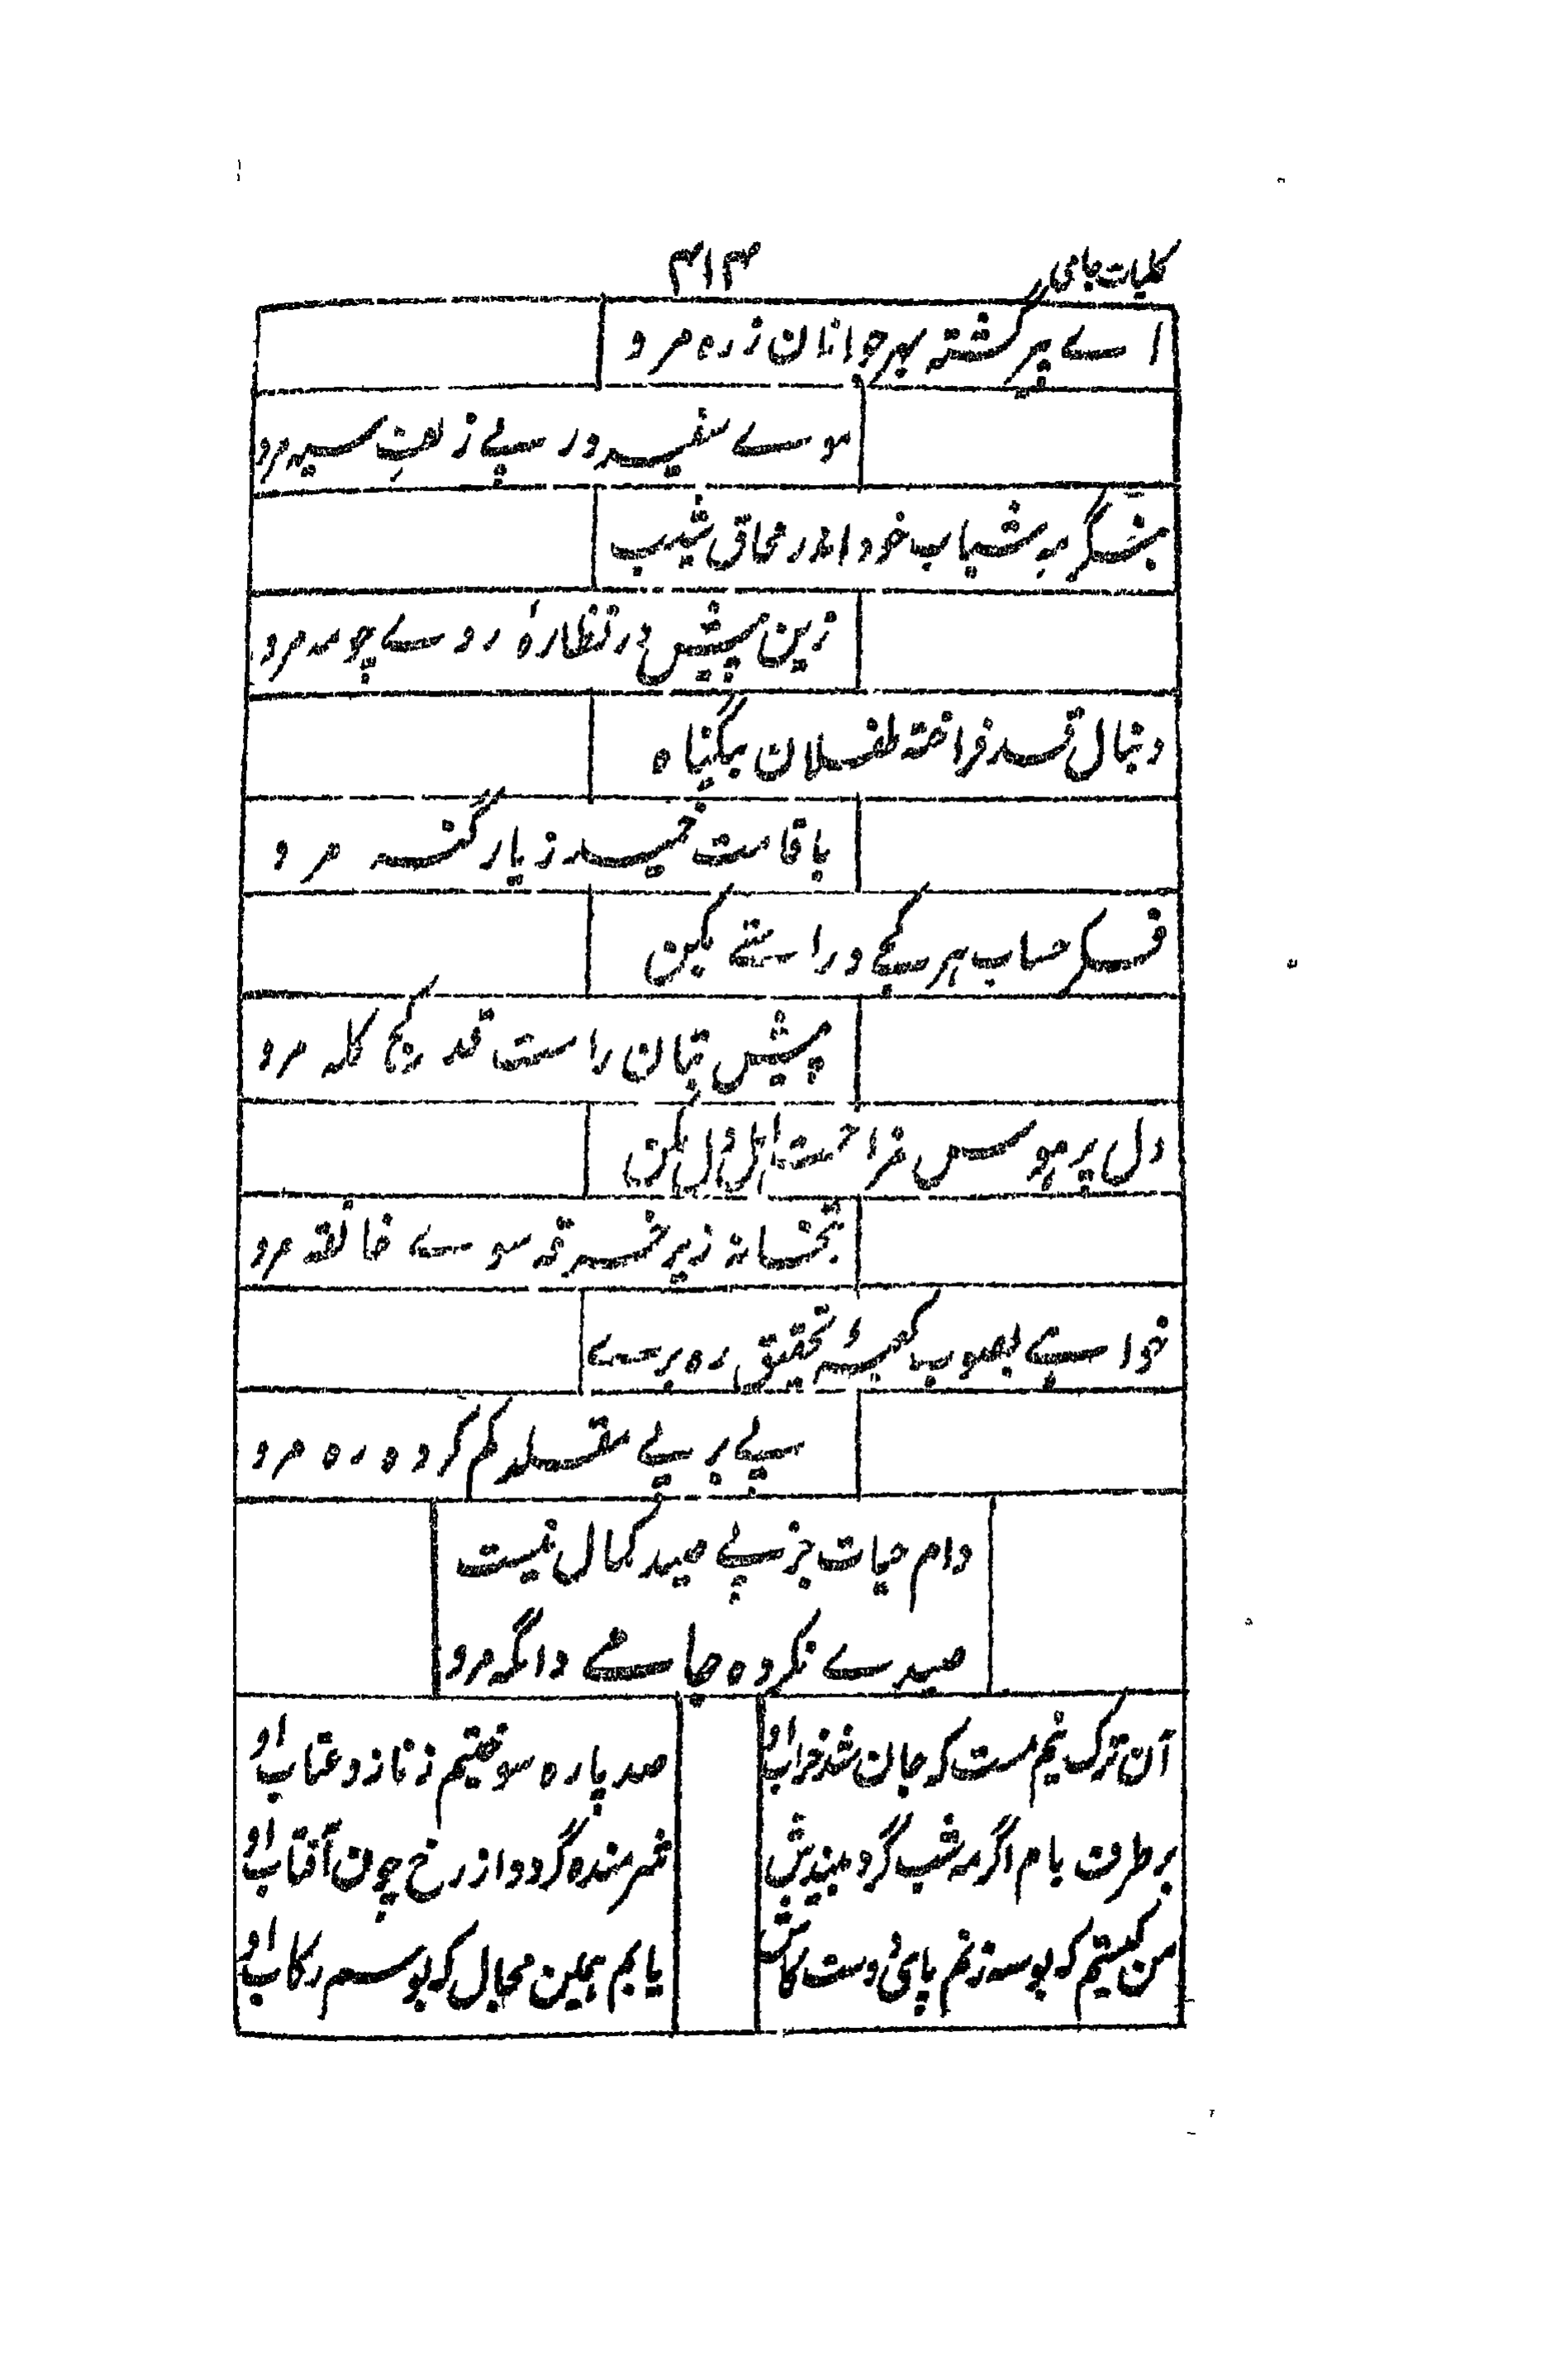 کلیات جامی
۴۱۴
اے پیر گشته بهر جوانان ز ره مرو
موے سفید در پے زلف سیه مرو
بنگر به شباب خود اندر محاق شیب
زین پیش در نظارهٔ روے چو مه مرو
دنبال قد فراخته طفلان بیگناه
با قامت خمیده ز بار گنه مرو
فکر حساب هر کجے و راستے بکن
پیش بتان راست قد کج کله مرو
دل پر هوس مزاحمت اهل دل مکن
بتخانه زیر خرقه سوے خانقه مرو
خواهے بصوب کعبهٔ تحقیق ره برے
پے بر پے مقلد گم کرده ره مرو
دام حیات جز پے صید کمال نیست
صیدے نکرده جامے ازین دامگه مرو
آن ترک نیم مست که جان شد خراب او
صد پاره سوختیم ز ناز و عتاب او
بر طرف بام اگر مه شب گرد بیندش
شرمنده گردد از رخ چون آفتاب او
من کیستم که بوسه زنم پائ دوست کاش
یابم همین مجال که بوسم رکاب او